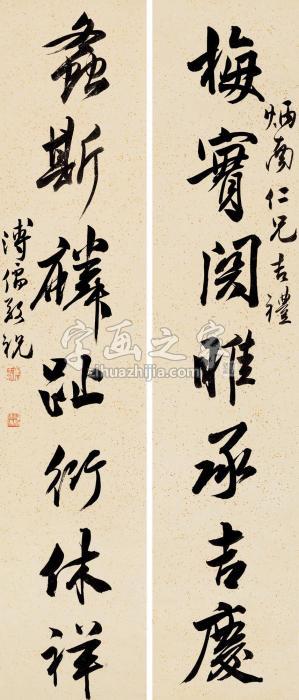 炳南仁兄吉禮
梅實関雎承吉慶
螽斯麟趾衍休祥
溥儒敬祝
字画之家
zihuazhijia.com